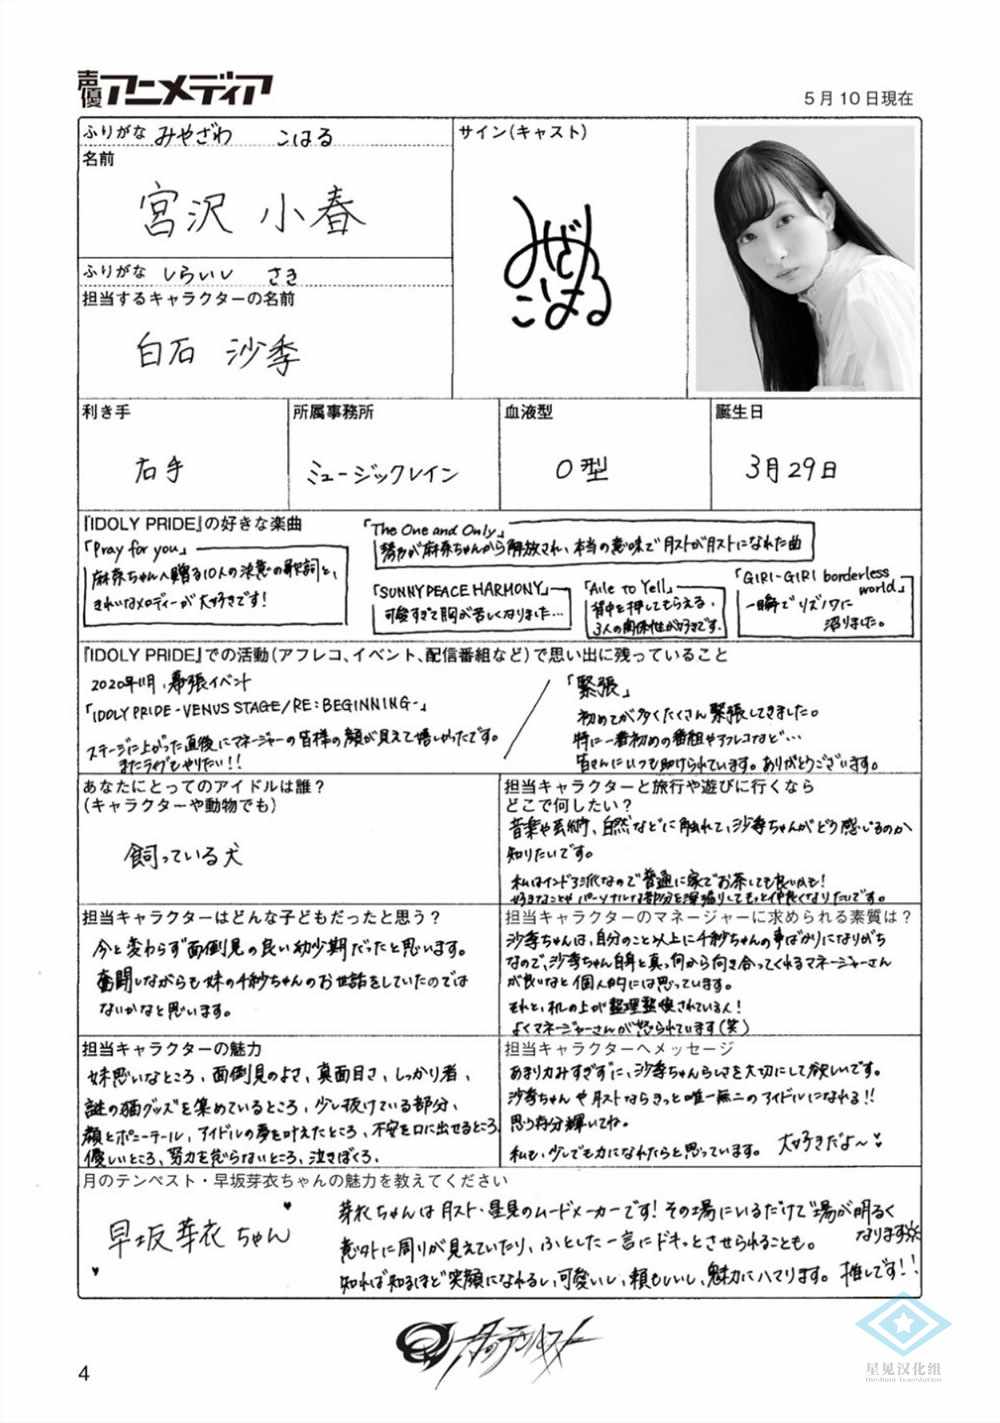 声優アニメディア
5月10日現在
ふりがな みやざわ こはる
名前
宮沢 小春
サイン(キャスト)
みやざわ
こはる
ふりがな しらいし さき
担当するキャラクターの名前
白石 沙季
利き手
右手
所属事務所
ミュージックレイン
血液型
O型
誕生日
3月29日
『IDOLY PRIDE』の好きな楽曲
「Pray for you」
麻奈ちゃんへ贈る10人の決意の歌詞と、
きれいなメロディーが大好きです!
「The One and Only」
努力が麻奈ちゃんから解放され、本当の意味で月ストが月ストになれた曲
「SUNNY PEACE HARMONY」
可愛すぎて胸が苦しくなりました…
「Aile to Yell」
背中を押してもらえる、
3人の関係性が好きです。
「GIRI-GIRI borderless world」
一瞬でリズノワに
沼りました。
『IDOLY PRIDE』での活動(アフレコ、イベント、配信番組など)で思い出に残っていること
2020年11月、幕張イベント
「IDOLY PRIDE -VENUS STAGE/RE:BEGINNING-」
ステージに上がった直後にマネージャーの皆様の顔が見えて嬉しかったです。
またライブもやりたい!!
「緊張」
初めてが多くたくさん緊張してきました。
特に一番初めの番組やアフレコなど…
皆さんにいつも助けられています。ありがとうございます。
あなたにとってのアイドルは誰?
(キャラクターや動物でも)
飼っている犬
担当キャラクターと旅行や遊びに行くなら
どこで何したい?
音楽や芸術、自然などに触れて、沙季ちゃんがどう感じるのか
知りたいです。
私はインドア派なので普通に家でお茶しても良いかも!
好きなことやパーソナルな部分を深掘りしてもっと仲良くなりたいです。
担当キャラクターはどんな子どもだったと思う?
今と変わらず面倒見の良い幼少期だったと思います。
奮闘しながらも妹の千紗ちゃんのお世話をしていたのでは
ないかなと思います。
担当キャラクターのマネージャーに求められる素質は?
沙季ちゃんは、自分のこと以上に千紗ちゃんの事ばかりになりがち
なので、沙季ちゃん自身と真っ向から向き合ってくれるマネージャーさん
が良いなと個人的には思っています。
それと、机の上が整理整頓されている人!
よくマネージャーさんが怒られています(笑)
担当キャラクターの魅力
妹思いなところ、面倒見のよさ、真面目さ、しっかり者、
謎の猫グッズを集めているところ、少し抜けている部分、
顔とポニーテール、アイドルの夢を叶えたところ、不安を口に出せるところ
優しいところ、努力を怠らないところ、泣きぼくろ、
担当キャラクターへメッセージ
あまり力みすぎずに、沙季ちゃんらしさを大切にして欲しいです。
沙季ちゃんや月ストならきっと唯一無二のアイドルになれる!!
思う存分輝いてね。
私も、少しでも力になれたらと思っています。 大好きだよ〜♥
月のテンペスト・早坂芽衣ちゃんの魅力を教えてください
早坂芽衣ちゃん
芽衣ちゃんは月スト・星見のムードメーカーです!その場にいるだけで場が明るく
なります
意外に周りが見えていたり、ふとした一言にドキッとさせられることも。
知れば知るほど笑顔になれるし、可愛いし、頼もしいし、魅力にハマります。推しです!!
月のテンペスト
4
星见汉化组